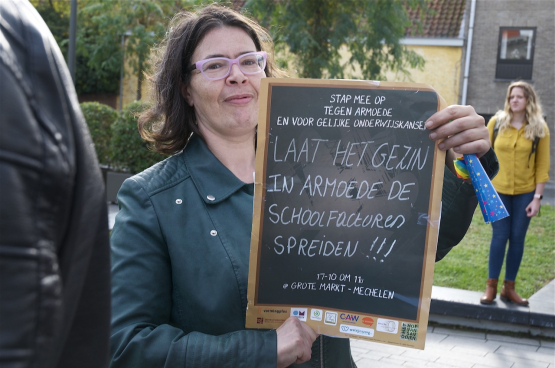 STAP MEE OP
TEGEN ARMOEDE
EN VOOR GELIJKE ONDERWIJSKANSEN
LAAT HET GEZIN
IN ARMOEDE DE
SCHOOLFACTUREN
SPREIDEN !!!
17-10 OM 11u
@ GROTE MARKT - MECHELEN
CAW